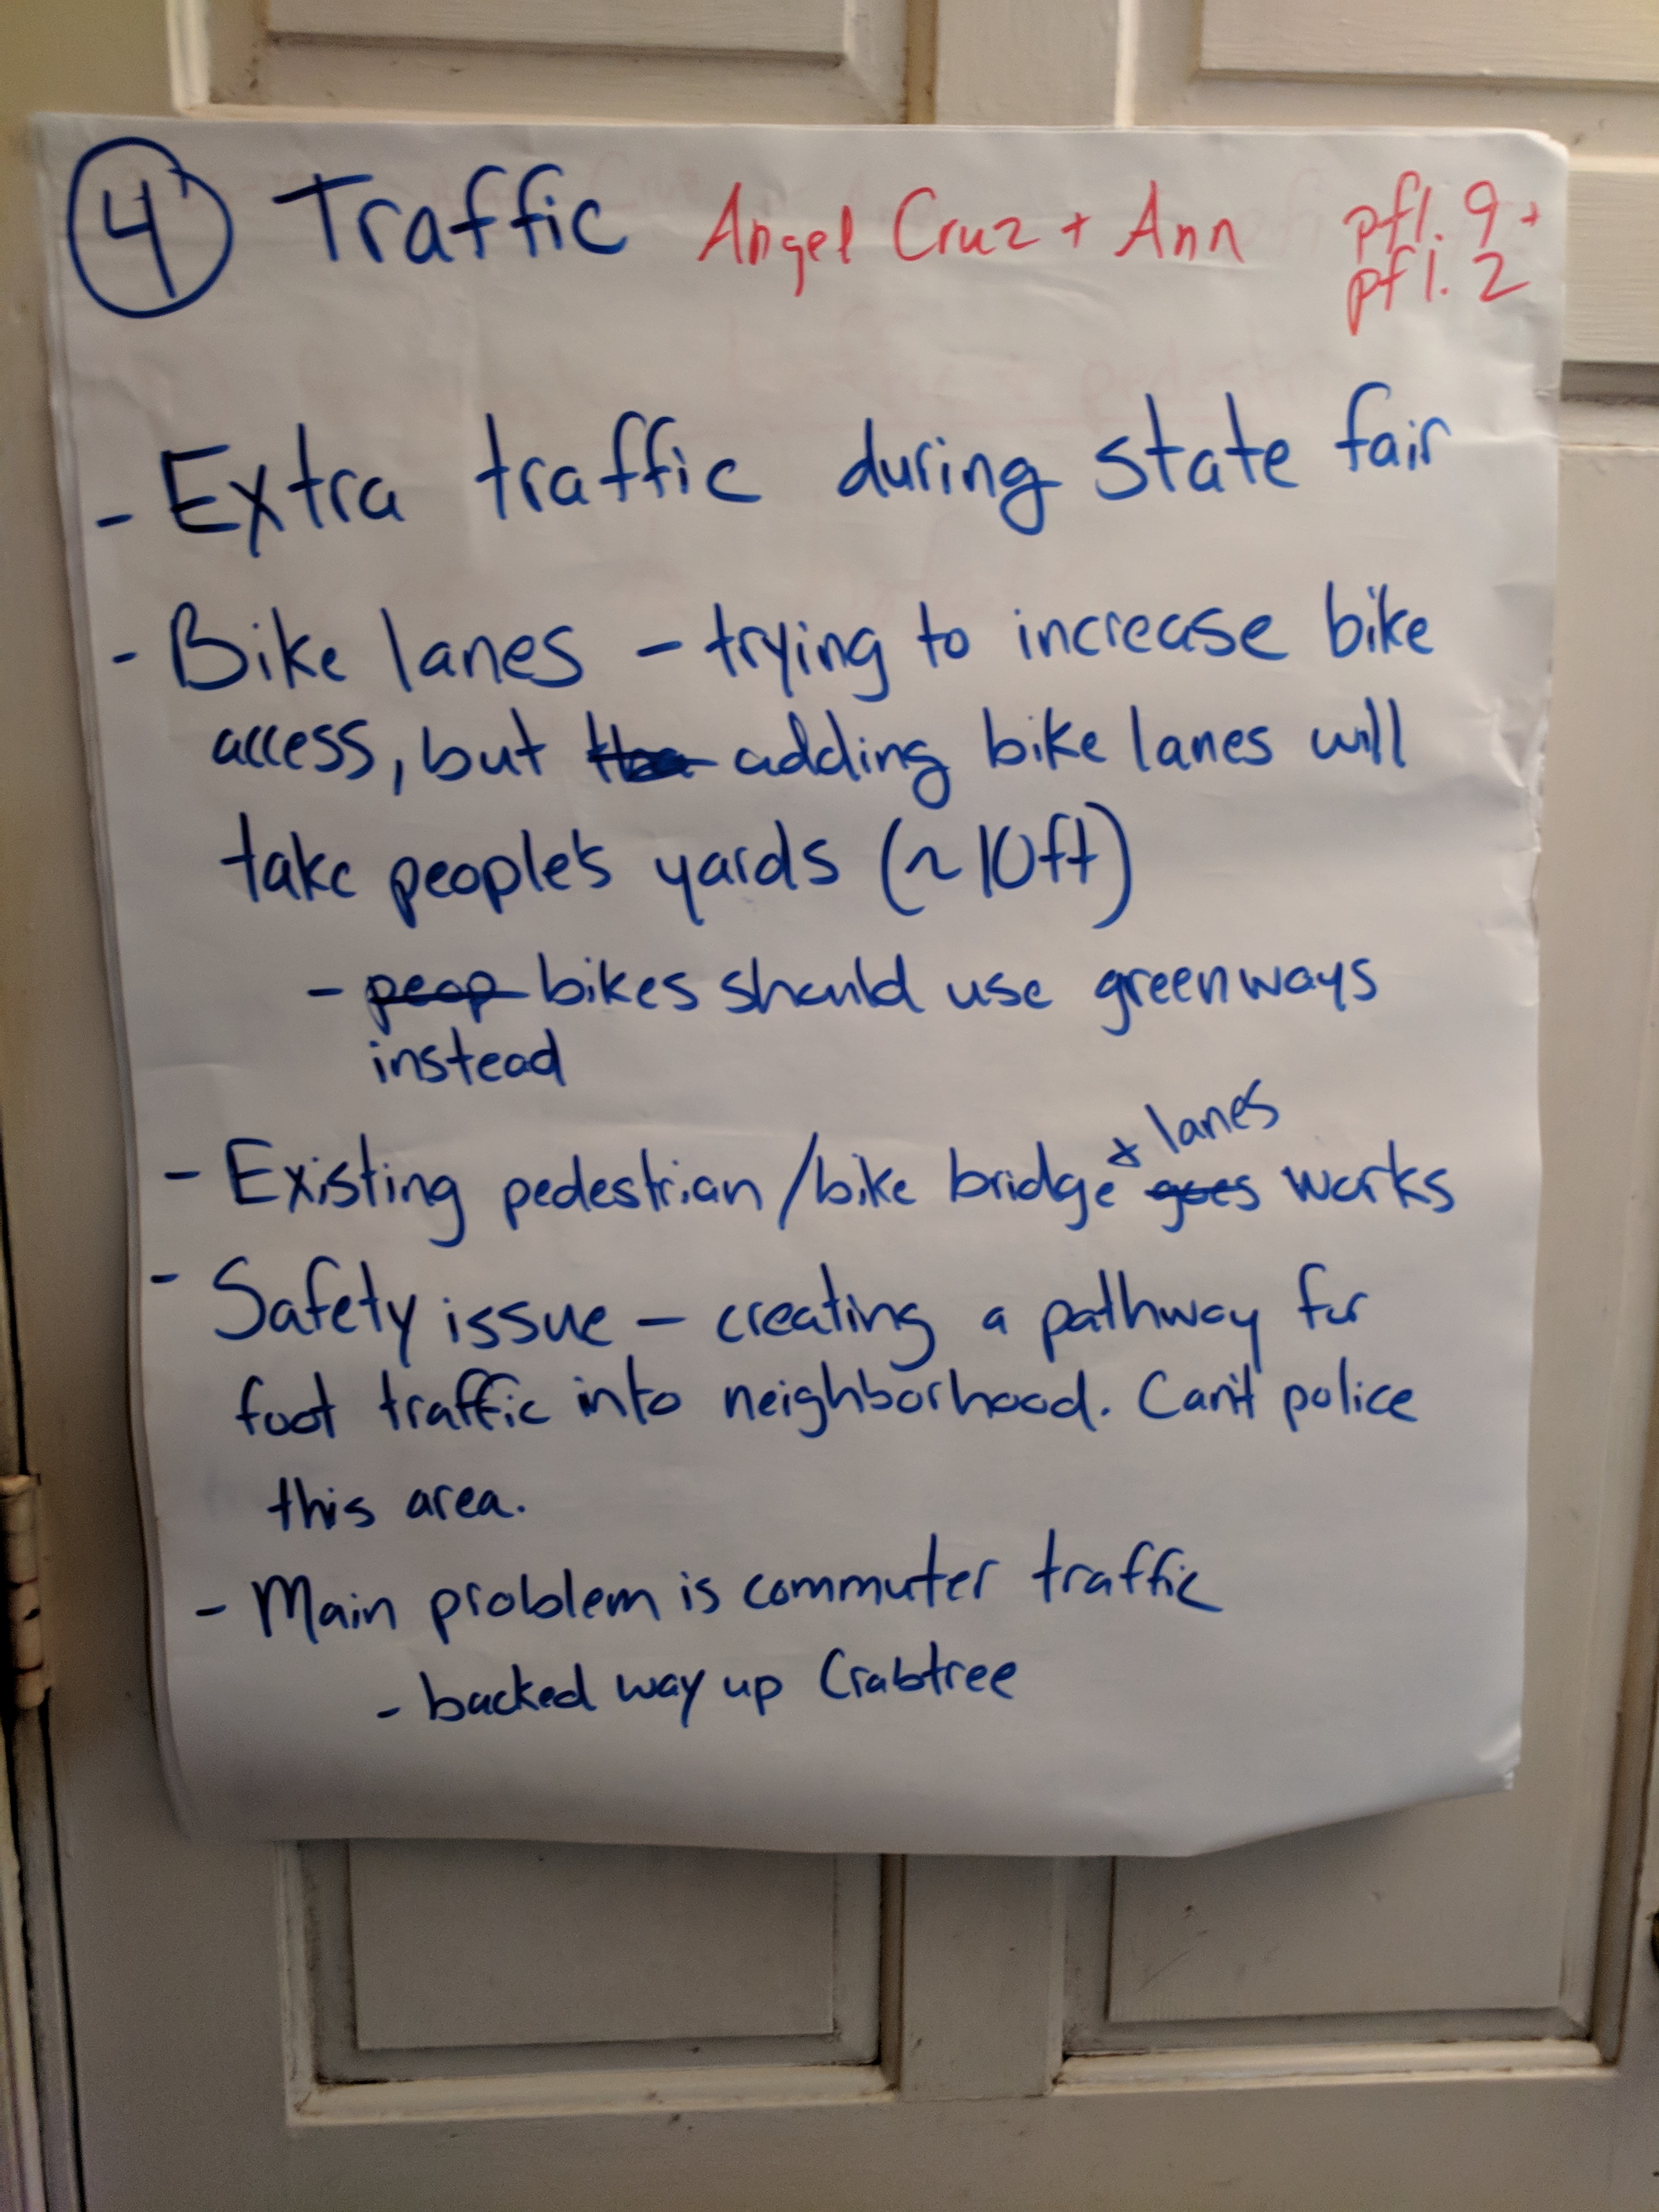 4 Traffic Angel Cruz + Ann pf1. 9 +
pf1. 2
- Extra traffic during state fair
- Bike lanes - trying to increase bike
access, but adding bike lanes will
take people's yards (~10ft)
- peop bikes should use greenways
instead
+ lanes
- Existing pedestrian/bike bridge goes works
- Safety issue - creating a pathway for
foot traffic into neighborhood. Can't police
this area.
- Main problem is commuter traffic
- backed way up Crabtree